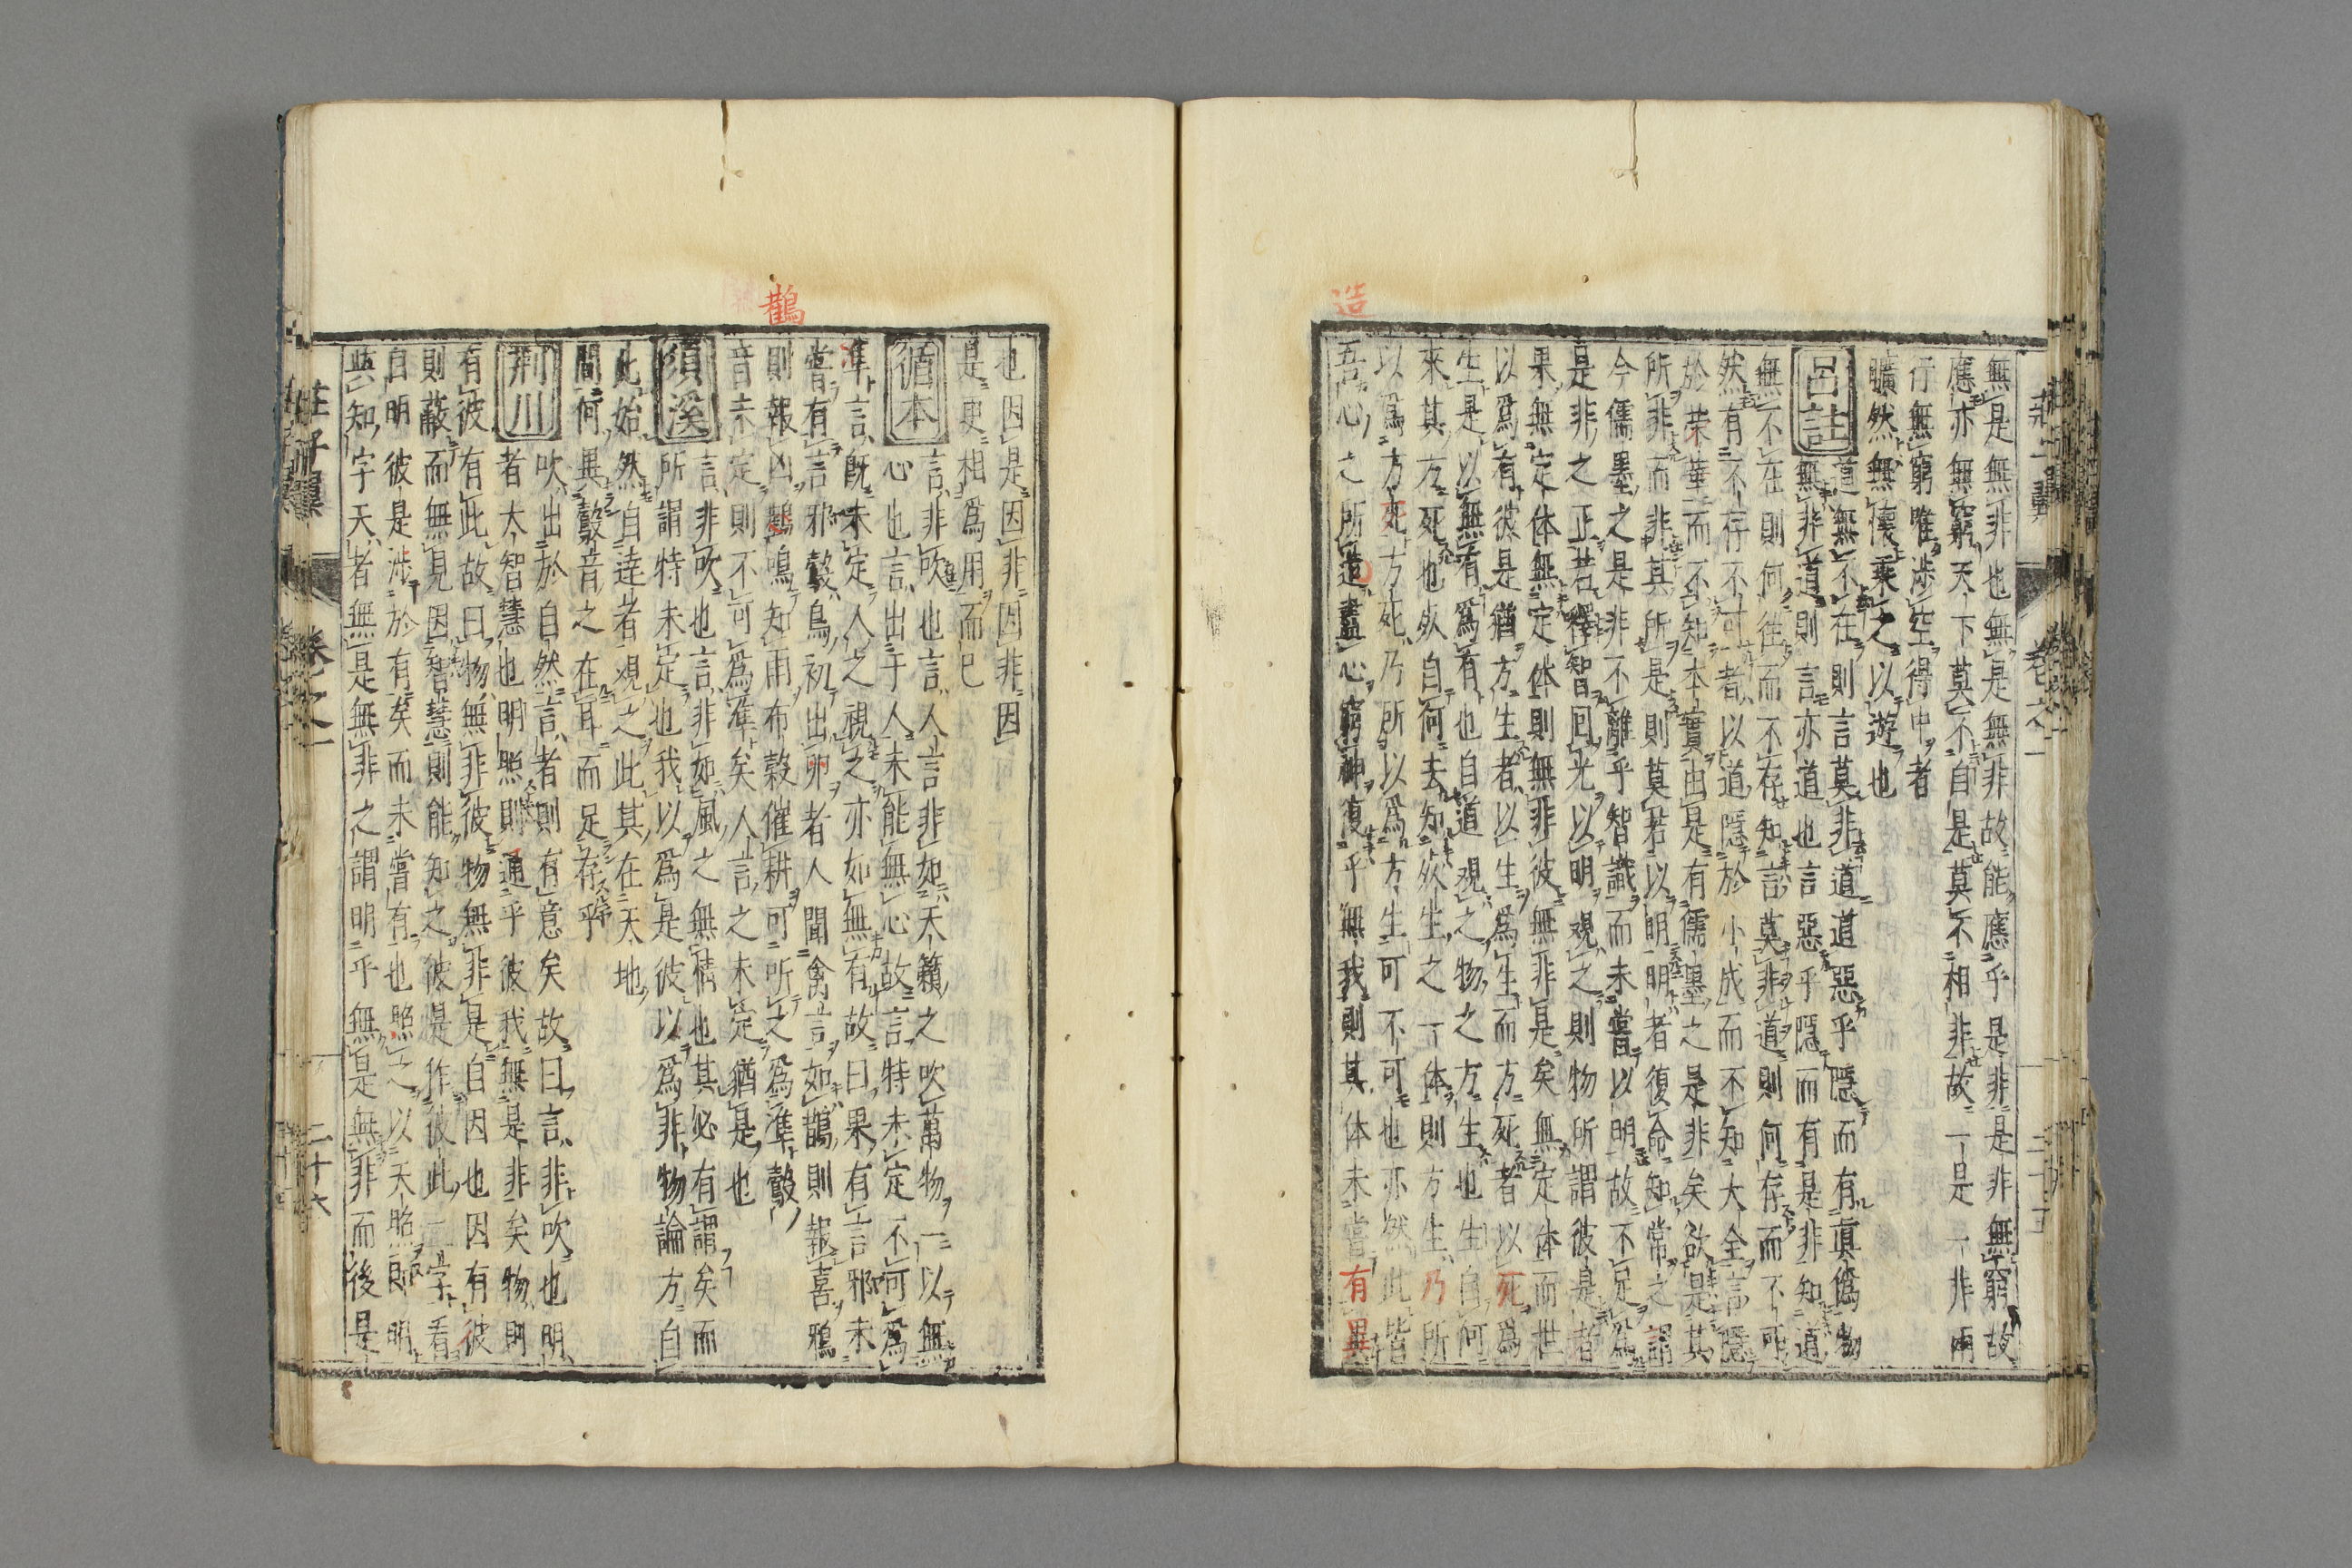 無是無非也無是無非故能應乎是非是非無窮故
應亦無窮天下莫不自是莫不相非故一是一非兩
行無窮唯涉空得中者
曠然無懷乘之以遊也
呂註
道無不在則言莫非道道惡乎隱而有真偽物
無非道則言亦道也言惡乎隱而有是非知道
無不在則何往而不存知言莫非道則何存而不可
然有不存不可者以道隱於小成而不知大全言隱
於榮華而不知本實出是有儒墨之是非矣欲是其
所非而非其所是則莫若以明明者復命知常之謂
今儒墨之是非不離乎智識而未嘗以明故不足為
是非之正若釋智回光以明觀之則物所謂彼是者
果無定体無定体則無非彼無非是矣無定体而世
以為有彼是猶方生者以生為生而方死者以死為
生是以無有為有也自道觀之物之方生也生自何
來其方死也死自何去知死生之一体則方生乃所
以為方死方死乃所以為方生可不可也亦然此皆
吾心之所造盡心窮神復乎無我則其体未嘗有異
造
莊子翼 卷之一
也因是因非因非因
是更相為用而已
循本
言非吹也言人言非如天籟之吹萬物一以無
心也言出于人未能無心故言特未定不可為
準言既未定人之視之亦如無有故曰果有言邪未
嘗有言邪鷇鳥初出卵者人聞禽言如鵲則報喜鴉
則報凶鵲鳴知雨布穀催耕可所之為準鷇
音未定則不可為準矣人言之未定猶是也
須溪
言非吹也言非如風之無情也其必有謂矣而
所謂特未定也我以為是彼以為非物論方自
此始然自達者視之此其在天地
間何異鷇音之在耳而足存乎
荊川
吹出於自然言者則有意矣故曰言非吹也明
者大智慧也明照則通乎彼我無是非矣物明
有彼有此故曰物無非彼物無非是自因也因有彼
則蔽而無見因智慧則能知之彼是作彼此二字看
自明彼是涉於有矣而未嘗有也照之以天照卽明
與知字天者無是無非之謂明乎無是無非而後是
鵲
莊子翼 卷之一 二十六